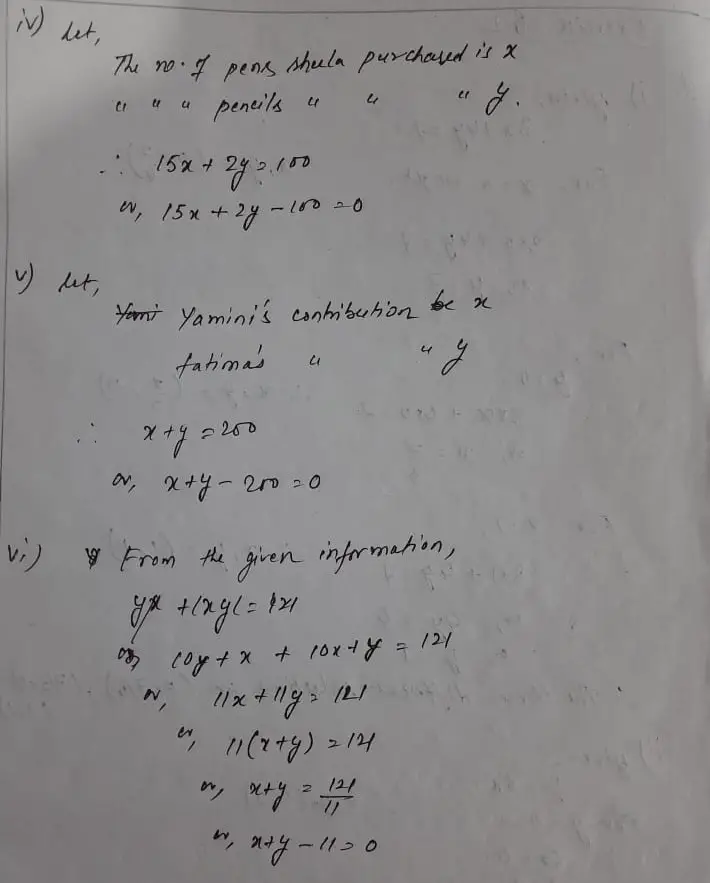 iv) Let,
The no. of pens sheela purchased is x
" " " pencils " " " y.
∴ 15x + 2y = 100
or, 15x + 2y - 100 = 0
v) Let,
Yamini's contribution be x
fatima's " " y
∴ x+y = 200
or, x+y - 200 = 0
vi) From the given information,
yx + (xy) = 121
or, 10y + x + 10x + y = 121
or, 11x + 11y = 121
or, 11(x+y) = 121
or, x+y = 121/11
or, x+y - 11 = 0